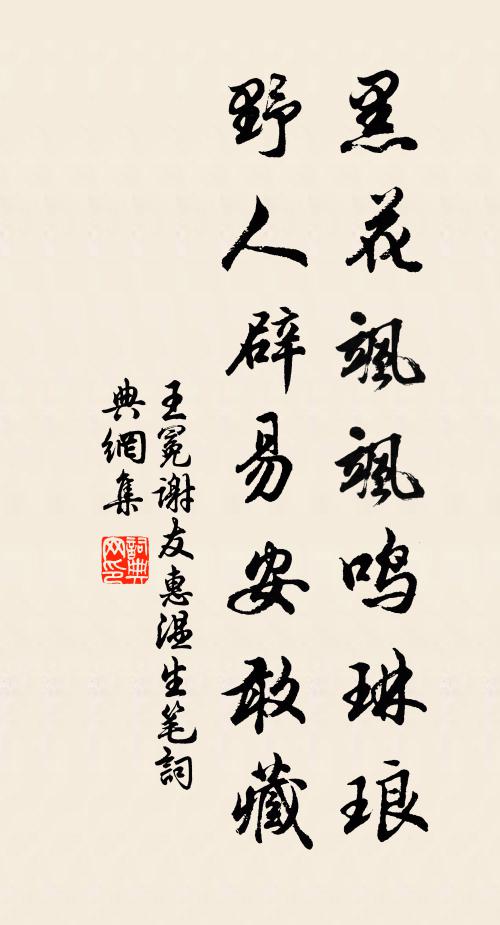 黑花飒飒鸣琳琅
野人辟易安敢藏
王冕谢友惠温生笔詞
典網集
詞典網印